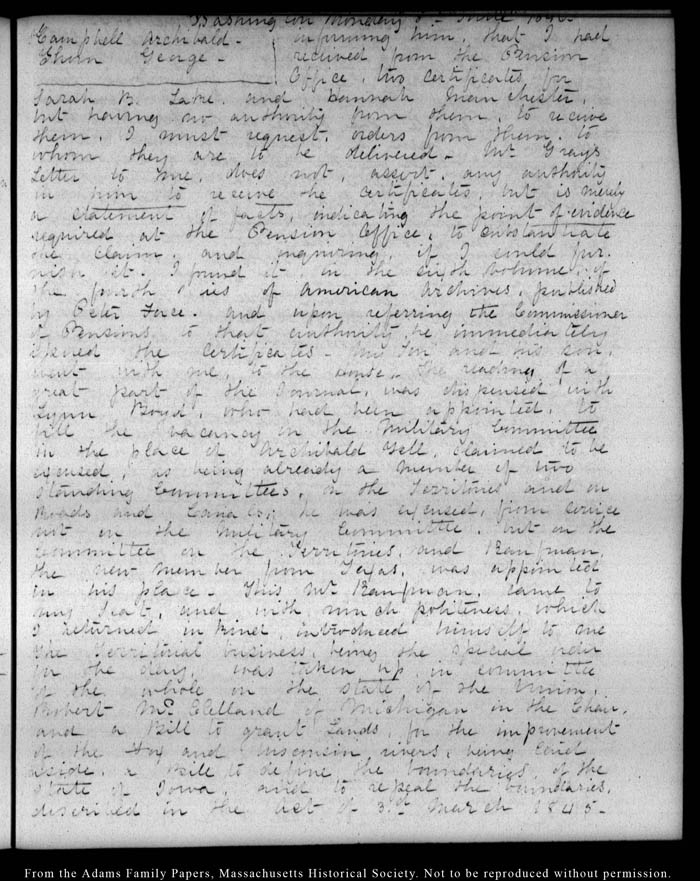 Washington Monday 8th June 1846.
Campbell Archibald - informing him, that I had
Thom George - received from the Pension
Office, two certificates for
Sarah B. Lake. and Hannah Manchester,
but having no authority from them, to receive
them, I must request, orders from them, to
whom they are to be delivered - Mr Gray's
Letter to me, does not, assert, any authority
in him to receive the certificates, but is merely
a statement of facts, indicating the point of evidence
required at the Pension Office, to substantiate
the claim, and inquiring, if I could fur-
nish it. I found it, in the sixth volume, of
the fourth series of American Archives, published
by Peter Force. and upon referring the Commissioner
of Pensions, to that authority he immediately
issued the certificates - and his son,
went with me, to the House. The reading of a
great part of the Journal, was dispensed with
Lynn Boyd, who had been appointed, to
fill the vacancy in the Military Committee
in the place of Archibald Yell, claimed to be
excused, as being already a member of two
Standing Committees, on the Territories and on
Roads and Canals; he was excused, from service
not on the Military Committee, but on the
Committee on the Territories, and Kaufman,
the new member from Texas, was appointed
in his place - This Mr Kaufman, came to
my Seat, and with much politeness, which
I returned in kind, introduced himself to me
The Territorial business, being the special order
for the day, was taken up, in committee
of the whole on the state of the Union,
Robert McClelland of Michigan in the Chair,
and a Bill to grant Lands, for the improvement
of the Fox and Wisconsin rivers, being laid
aside, a Bill to define the boundaries, of the
State of Iowa, and to repeal the boundaries,
described in the Act of 3d March 1845-
From the Adams Family Papers, Massachusetts Historical Society. Not to be reproduced without permission.